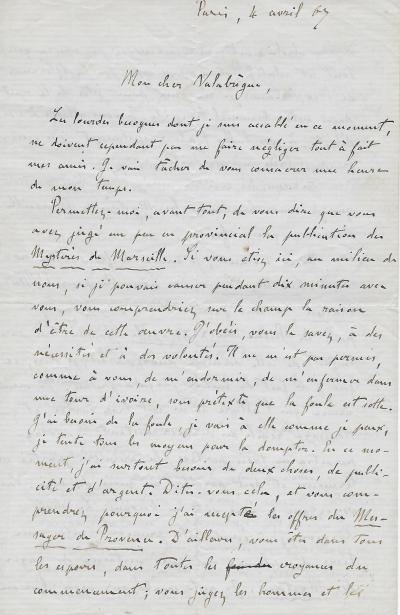 Paris, 4 avril 67
Mon cher Valabrègue,
Les lourdes besognes dont je suis accablé en ce moment,
ne doivent cependant pas me faire négliger tout à fait
mes amis. Je vais tâcher de vous consacrer une heure
de mon temps.
Permettez-moi, avant tout, de vous dire que vous
avez jugé un peu en provincial la publication des
Mystères de Marseille. Si vous étiez ici, au milieu de
nous, si je pouvais causer pendant dix minutes avec
vous, vous comprendriez sur le champ la raison
d'être de cette œuvre. J'obéis, vous le savez, à des
nécessités et à des volontés. Il ne m'est pas permis,
comme à vous, de m'endormir, de m'enfermer dans
une tour d'ivoire, sous prétexte que la foule est sotte.
J'ai besoin de la foule, je vais à elle comme je peux,
je tente tous les moyens pour la dompter. En ce mo-
ment, j'ai surtout besoin de deux choses, de publi-
cité et d'argent. Dites-vous cela, et vous com-
prendrez pourquoi j'ai accepté les offres du Mes-
sager de Provence. D'ailleurs, vous êtes dans tous
les espoirs, dans toutes les croyances du
commencement; vous jugez les hommes et les